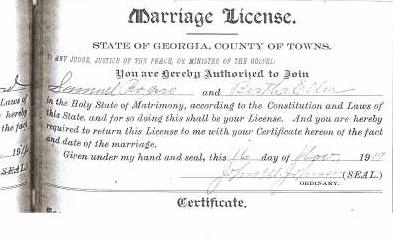 Marriage License.
STATE OF GEORGIA, COUNTY OF TOWNS.
TO ANY JUDGE, JUSTICE OF THE PEACE, OR MINISTER OF THE GOSPEL:
You are Hereby Authorized to Join
Samuel Rogers and Bertha Eller
in the Holy State of Matrimony, according to the Constitution and Laws of
this State, and for so doing this shall be your License. And you are hereby
required to return this License to me with your Certificate hereon of the fact
and date of the marriage.
Given under my hand and seal, this 16 day of Nov. 1910
John (SEAL.)
ORDINARY.
Certificate.
Laws of
hereby
the fact
SEAL.